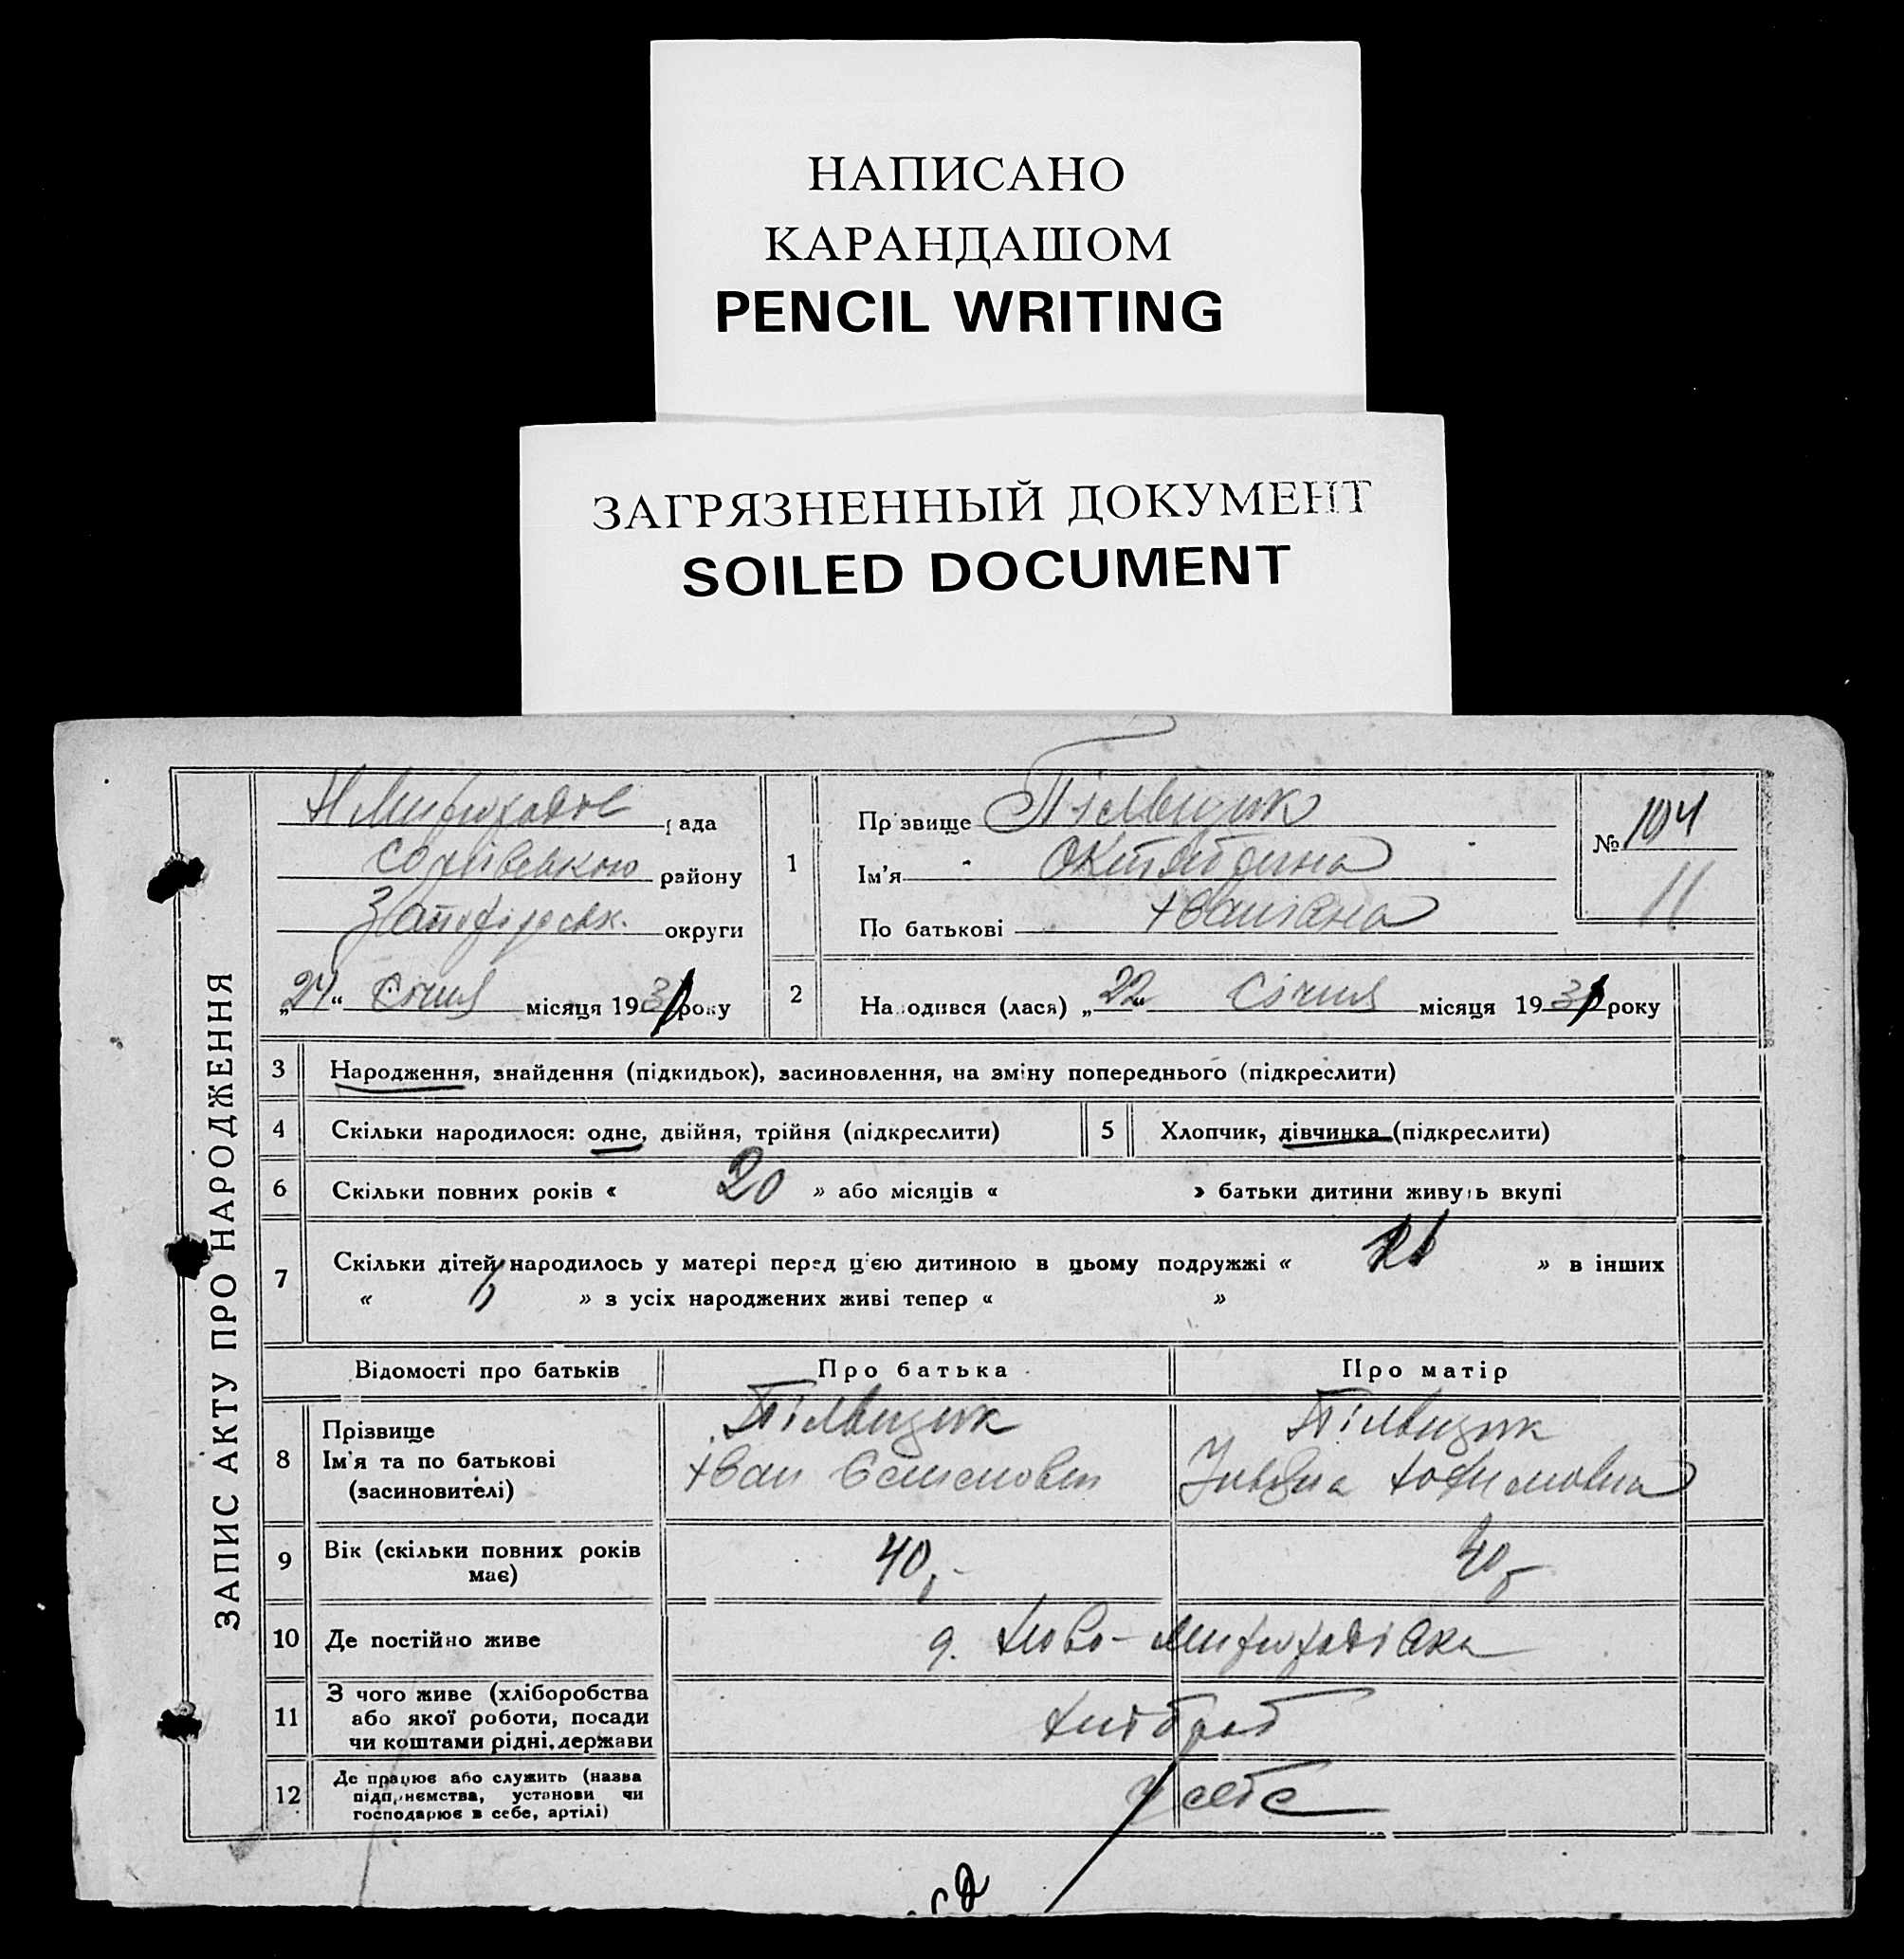 НАПИСАНО
КАРАНДАШОМ
PENCIL WRITING
ЗАГРЯЗНЕННЫЙ ДОКУМЕНТ
SOILED DOCUMENT
ЗАПИС АКТУ ПРО НАРОДЖЕННЯ
рада
району
округи
„24“ Січня місяця 193 року
1
Прізвище
Ім'я Октябрина
По батькові Іванівна
№ 104
11
2
Народився (лася) „22“ Січня місяця 193 року
3 Народження, знайдення (підкидьок), засиновлення, на зміну попереднього (підкреслити)
4 Скільки народилося: одне, двійня, трійня (підкреслити)
5 Хлопчик, дівчинка (підкреслити)
6 Скільки повних років « 20 » або місяців « » батьки дитини живуть вкупі
7 Скільки дітей народилось у матері перед ц'єю дитиною в цьому подружжі « » в інших
« » з усіх народжених живі тепер « »
Відомості про батьків
Про батька
Про матір
8 Прізвище
Ім'я та по батькові
(засиновителі)
Іван
9 Вік (скільки повних років
має)
40
40
10 Де постійно живе
Ново-
11 З чого живе (хліборобства
або якої роботи, посади
чи коштами рідні, держави
хлібороб
12 Де працює або служить (назва
підприємства, установи чи
господарює в себе, артілі)
У себе